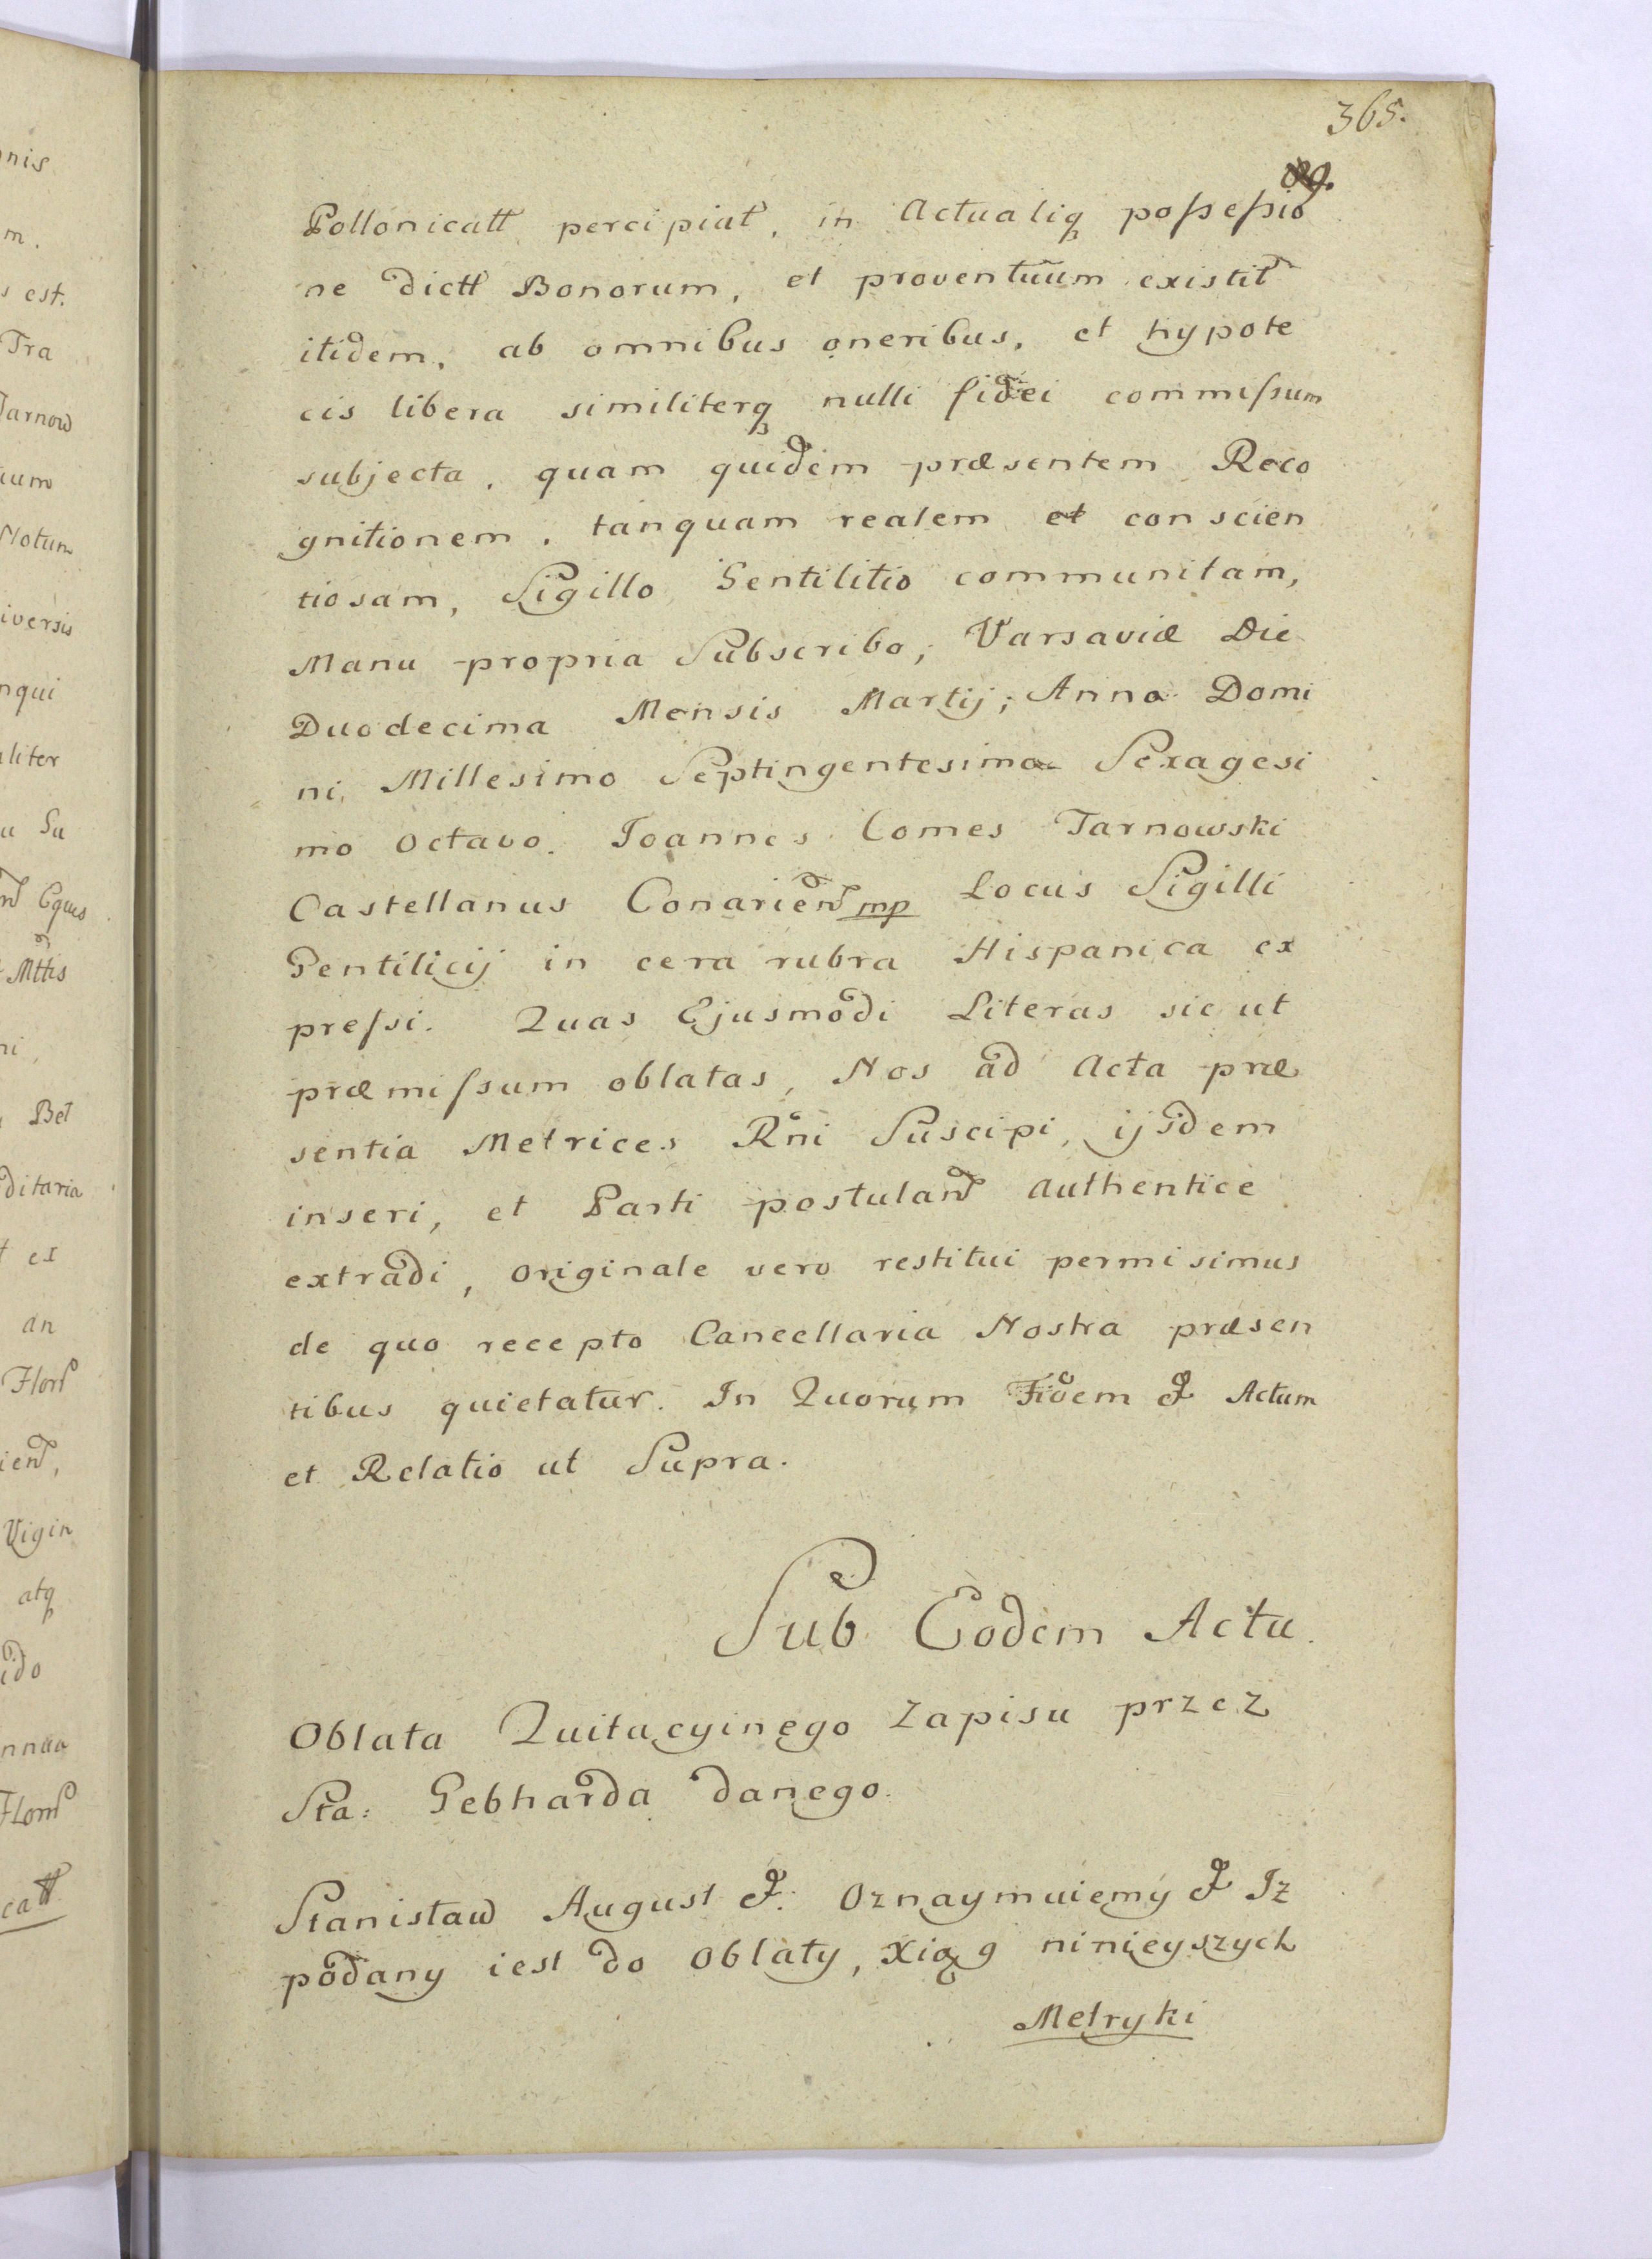 365.
Pollonicatt percipiat, in Actualiq possessio
ne dictt Bonorum, et proventuum existit
itidem, ab omnibus oneribus, et hypote
cis libera similiterq nulli fidei commissum
subjecta, quam quidem præsentem Reco
gnitionem, tanquam realem et conscien
tiosam, Sigillo Gentilitio communitam,
Manu propria Subscribo; Varsaviæ Die
Duodecima Mensis Martij; Anno Domi
ni, Millesimo Septingentesimo Sexagesi
mo Octavo. Joannes Comes Tarnowski
Castellanus Conarien mp Locus Sigilli
Gentilicij in cera rubra Hispanica ex
pressi. Quas Ejusmodi Literas sic ut
præmissum oblatas, Nos ad Acta præ
sentia Metrices Rni Suscipi, ijsdem
inseri, et Parti postulan Authentice
extradi, Originale vero restitui permisimus
de quo recepto Cancellaria Nostra præsen
tibus quietatur. In Quorum Fidem & Actum
et Relatio ut Supra.
Sub Eodem Actu.
Oblata Quitacyinego Zapisu przez
Sta: Gebharda danego.
Stanisław August &: Oznaymuiemy & Iz
podany iest do Oblaty, Xiąg ninieyszych
Metryki
nis
m.
est.
Tra
Tarnow
Notum
iversis
nqui
liter
Su
Eques
Mttis
Bel
ditaria
ex
an
Flor
ien,
Vigin
atq
ido
nnua
Flor
catt